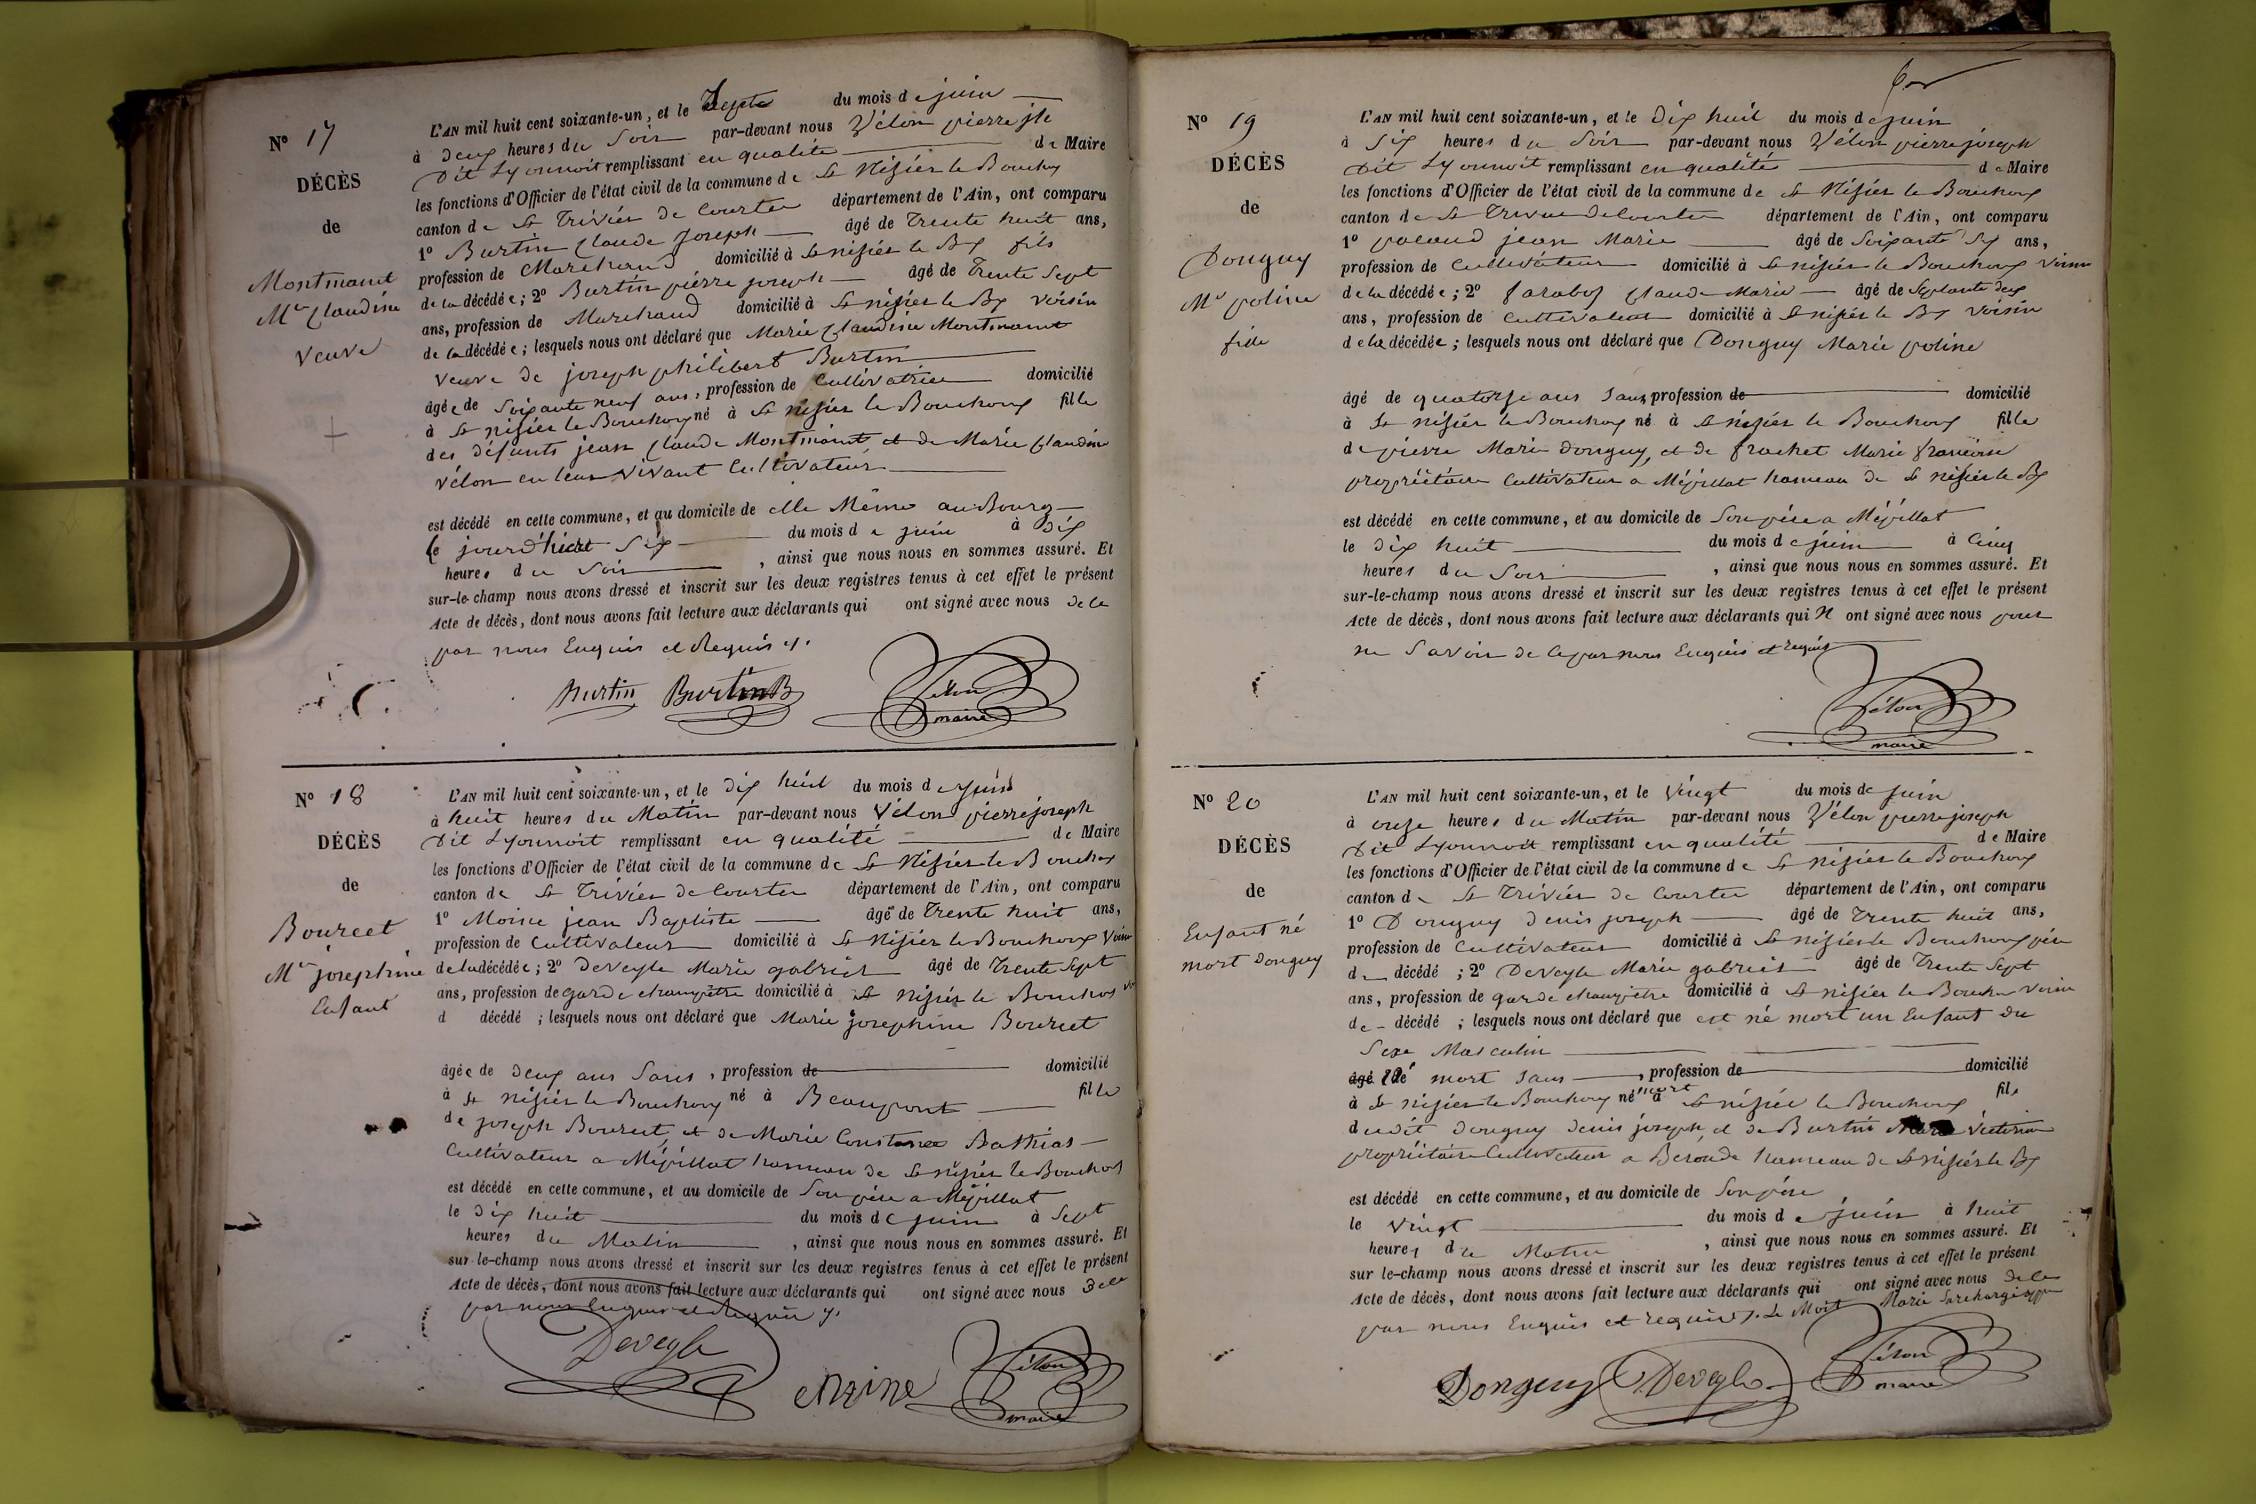 Nº 17
DÉCÈS
de
Montmount
Mie Claudine
veuve
L'AN mil huit cent soixante-un, et le Sept du mois de juin
à deux heures du Soir par-devant nous Vélon pierre jh
Dit Lyonnoit remplissant en qualité de Maire
les fonctions d'Officier de l'état civil de la commune de St Nisier le Bouchoux
canton de St Trivier de Courte département de l'Ain, ont comparu
1º Burtin Claude Joseph âgé de Trente huit ans,
profession de Marchand domicilié à St nisier le Bx fils
de la décédée; 2º Burtin pierre joseph âgé de Trente Sept
ans, profession de Marchand domicilié à St nisier le Bx voisin
de la décédée; lesquels nous ont déclaré que Marie Claudine Montmount
veuve de joseph philibert Burtin
âgée de Soixante neuf ans, profession de Cultivatrice domicilié
à St nisier le Bouchoux né à St nisier le Bouchoux fille
des défunts jean Claude Montmount et de Marie Claudine
vélon en leur vivant Cultivateur
est décédé en cette commune, et au domicile de elle Même au Bourg
le jourd'hier Six du mois de juin à Dix
heures du Soir, ainsi que nous nous en sommes assuré. Et
sur-le-champ nous avons dressé et inscrit sur les deux registres tenus à cet effet le présent
Acte de décès, dont nous avons fait lecture aux déclarants qui ont signé avec nous de ce
par nous Enquis et Requis
Burtin Burtin B Vélon
maire
Nº 18
DÉCÈS
de
Bourcet
Mie josephine
Enfant
L'AN mil huit cent soixante-un, et le dix huit du mois de juin
à huit heures du Matin par-devant nous Vélon pierre joseph
Dit Lyonnoit remplissant en qualité de Maire
les fonctions d'Officier de l'état civil de la commune de St Nisier le Bouchoux
canton de St Trivier de Courte département de l'Ain, ont comparu
1º Moine jean Baptiste âgé de Trente huit ans,
profession de Cultivateur domicilié à St Nisier le Bouchoux voisin
de la décédée; 2º Deveyle Marie gabriel âgé de Trente Sept
ans, profession de garde champêtre domicilié à St nisier le Bouchoux
d décédé; lesquels nous ont déclaré que Marie josephine Bourcet
âgée de deux ans Sans, profession de domicilié
à St nisier le Bouchoux né à Beaupont fille
de joseph Bourcet et de Marie Constance Bathias
Cultivateur a Mépillat hameau de St nisier le Bouchoux
est décédé en cette commune, et au domicile de Son père a Mépillat
le dix huit du mois de juin à Sept
heures du Matin, ainsi que nous nous en sommes assuré. Et
sur-le-champ nous avons dressé et inscrit sur les deux registres tenus à cet effet le présent
Acte de décès, dont nous avons fait lecture aux déclarants qui ont signé avec nous de ce
par nous Enquis et Requis
Deveyle Moine Vélon
maire
Nº 19
DÉCÈS
de
Donguy
Mie poline
fille
L'AN mil huit cent soixante-un, et le Dix huit du mois de juin
à Six heures du Soir par-devant nous Vélon pierre joseph
Dit Lyonnoit remplissant en qualité de Maire
les fonctions d'Officier de l'état civil de la commune de St Nisier le Bouchoux
canton de St Trivier de Courte département de l'Ain, ont comparu
1º pacaud jean Marie âgé de Soixante Six ans,
profession de Cultivateur domicilié à St nisier le Bouchoux voisin
de la décédée; 2º Claude Marie âgé de Septante deux
ans, profession de Cultivateur domicilié à St nisier le Bx voisin
de la décédée; lesquels nous ont déclaré que Donguy Marie poline
âgé de quatorze ans Sans, profession de domicilié
à St nisier le Bouchoux né à St nisier le Bouchoux fille
de pierre Marie Donguy, et de frachet Marie françoise
propriétaire Cultivateur a Mépillat hameau de St nisier le Bx
est décédé en cette commune, et au domicile de Son père a Mépillat
le dix huit du mois de juin à Cinq
heures du Soir, ainsi que nous nous en sommes assuré. Et
sur-le-champ nous avons dressé et inscrit sur les deux registres tenus à cet effet le présent
Acte de décès, dont nous avons fait lecture aux déclarants qui N ont signé avec nous pour
ne Savoir de ce par nous Enquis et requis
Vélon
maire
Nº 20
DÉCÈS
de
Enfant né
mort Donguy
L'AN mil huit cent soixante-un, et le vingt du mois de juin
à onze heures du Matin par-devant nous Vélon pierre joseph
Dit Lyonnoit remplissant en qualité de Maire
les fonctions d'Officier de l'état civil de la commune de St nisier le Bouchoux
canton de St Trivier de Courte département de l'Ain, ont comparu
1º Donguy denis joseph âgé de Trente huit ans,
profession de Cultivateur domicilié à St nisier le Bouchoux père
du décédé; 2º Deveyle Marie gabriel âgé de Trente Sept
ans, profession de garde champêtre domicilié à St nisier le Bouchoux voisin
de décédé; lesquels nous ont déclaré que est né mort un Enfant du
Sexe Masculin
âgé né mort Sans, profession de domicilié
à St nisier le Bouchoux né mort à St nisier le Bouchoux fils
dudit Donguy denis joseph, et de Burtin Marie victorine
propriétaire Cultivateur a Beronde hameau de St nisier le Bx
est décédé en cette commune, et au domicile de Son père
le vingt du mois de juin à huit
heures du Matin, ainsi que nous nous en sommes assuré. Et
sur le-champ nous avons dressé et inscrit sur les deux registres tenus à cet effet le présent
Acte de décès, dont nous avons fait lecture aux déclarants qui ont signé avec nous de ce
par nous Enquis et requis Le Mot Marie Sarchargé
Donguy Deveyle Vélon
maire